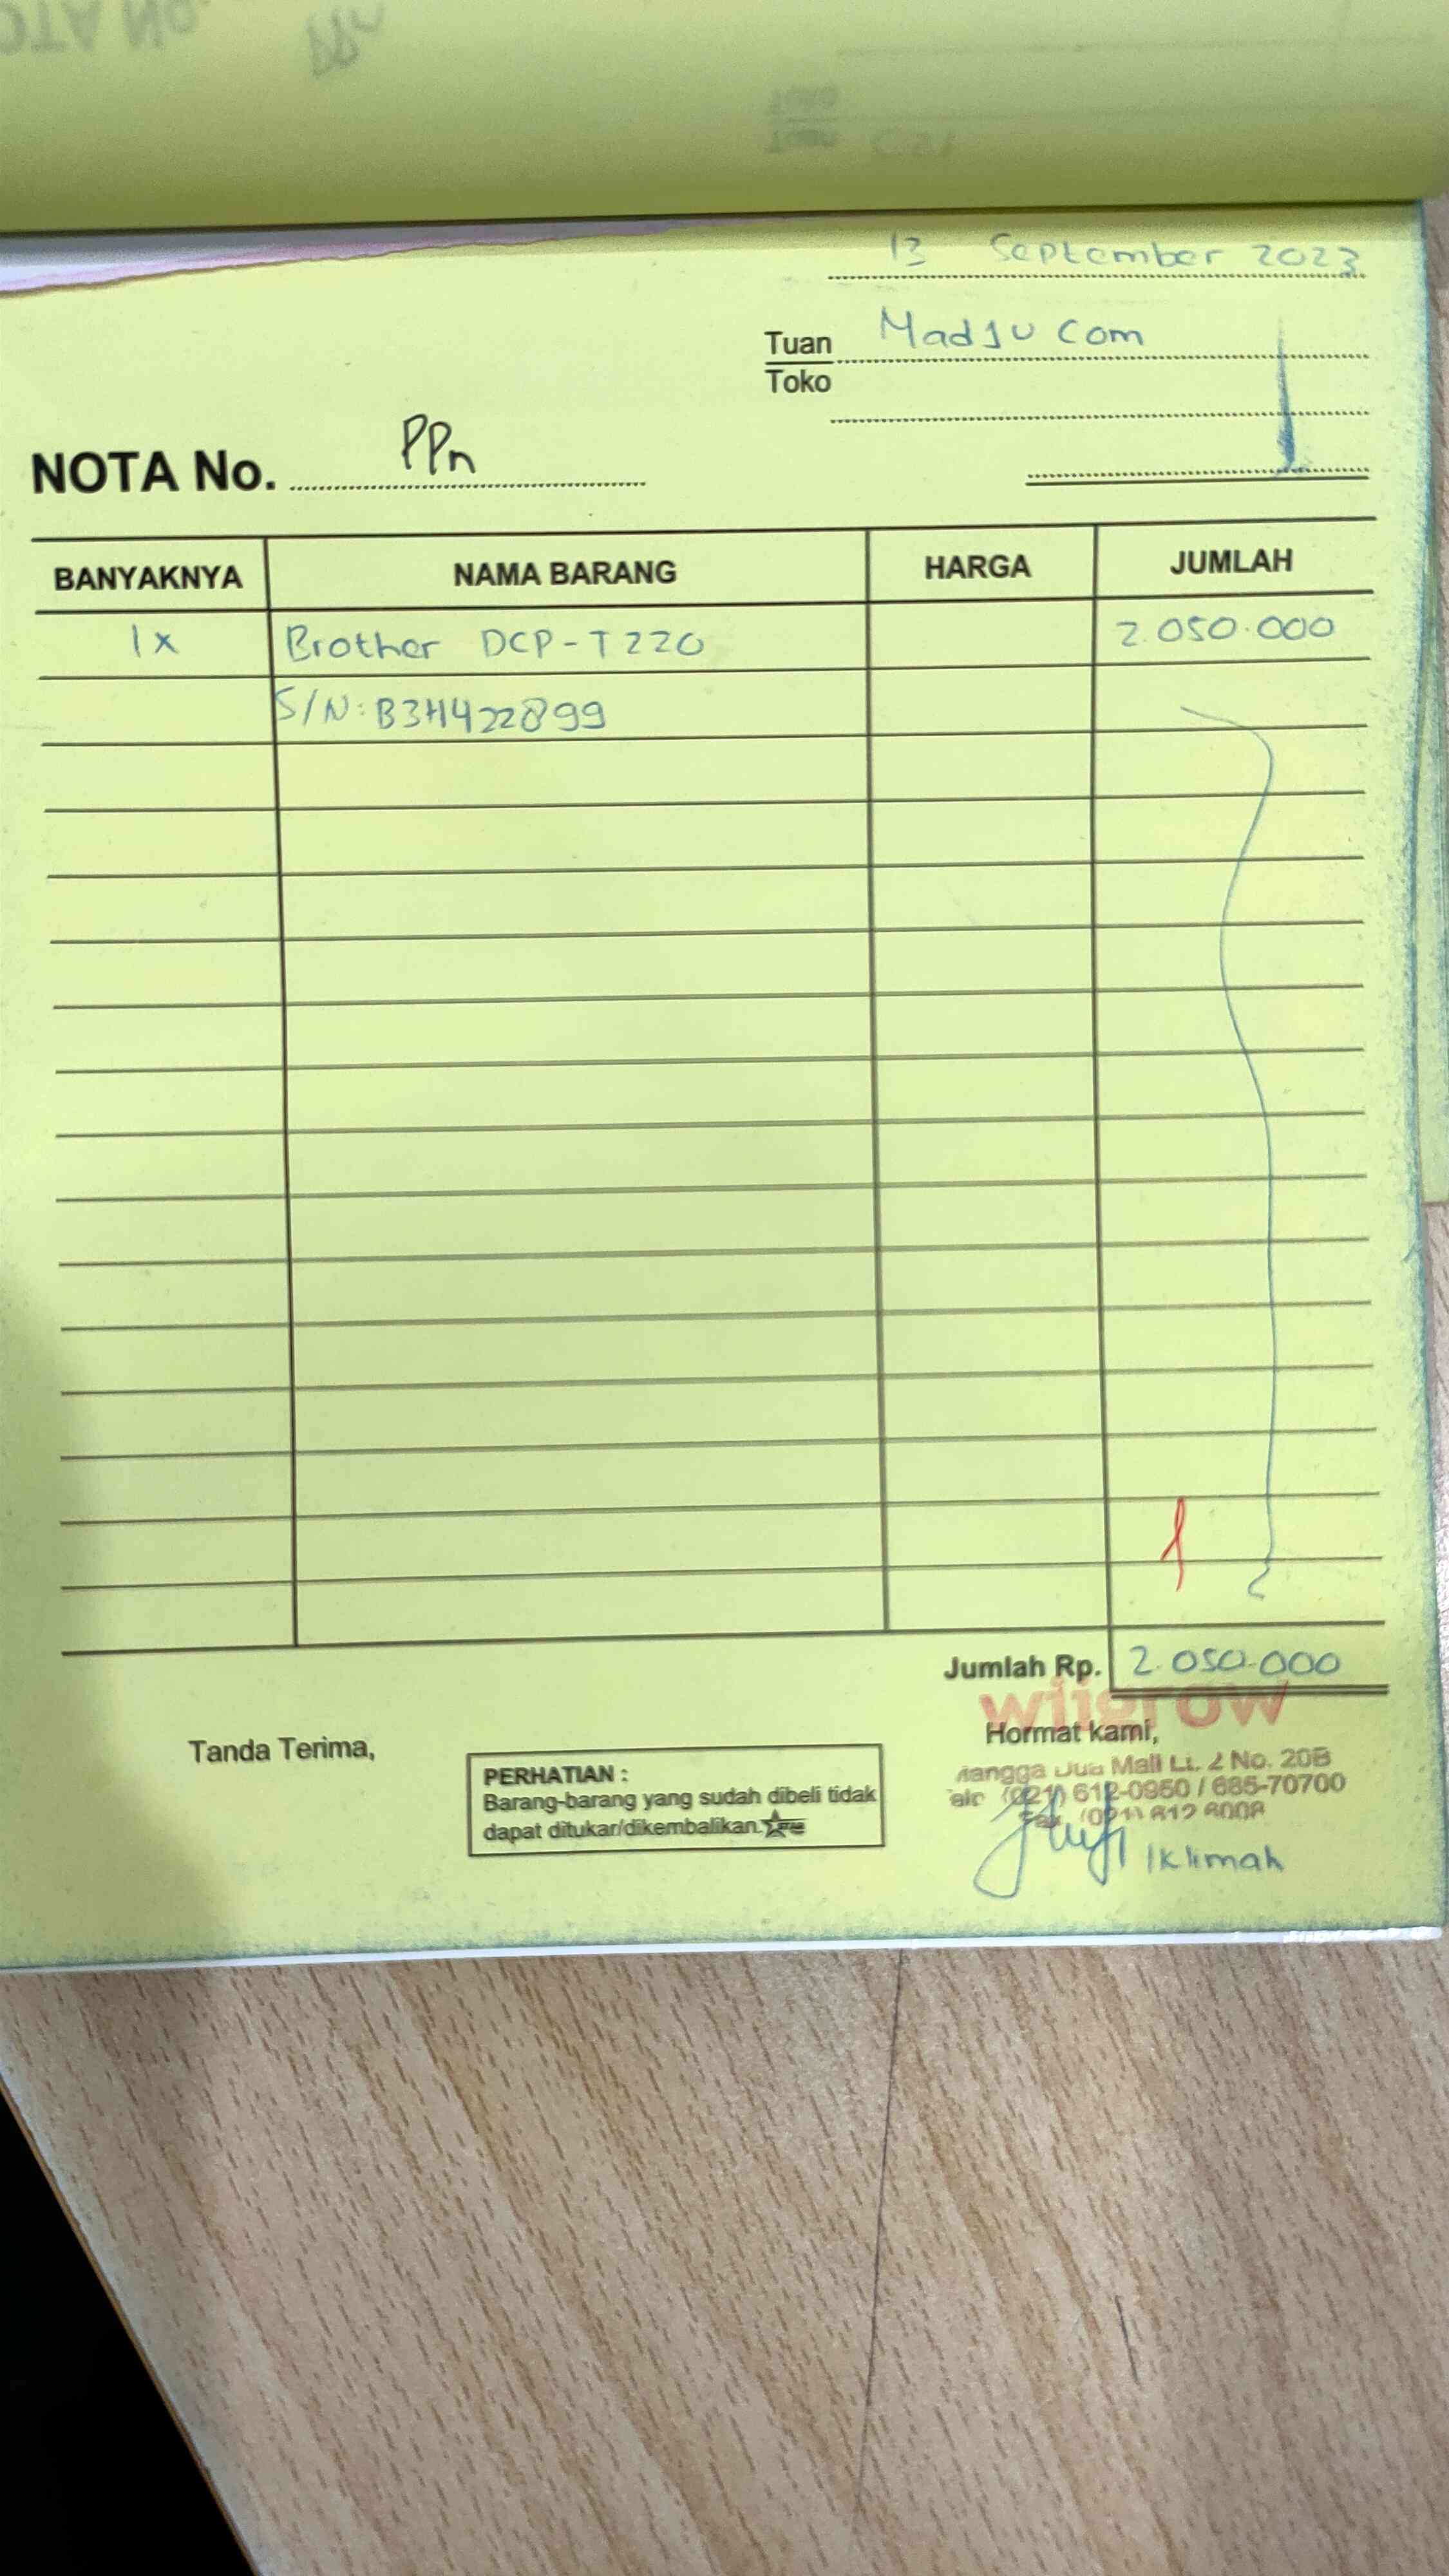 13 September 2023
Tuan Madju Com
Toko
NOTA No. PPn
BANYAKNYA NAMA BARANG HARGA JUMLAH
1x Brother DCP-T220 2.050.000
S/N: B3H422899
Jumlah Rp. 2.050.000
wijgrow
Tanda Terima, Hormat kami,
PERHATIAN :
Barang-barang yang sudah dibeli tidak
dapat ditukar/dikembalikan.
Mangga Dua Mall Lt. 2 No. 20B
(021) 612-0950 / 685-70700
Fax. (021) 612 6008
Iklimah